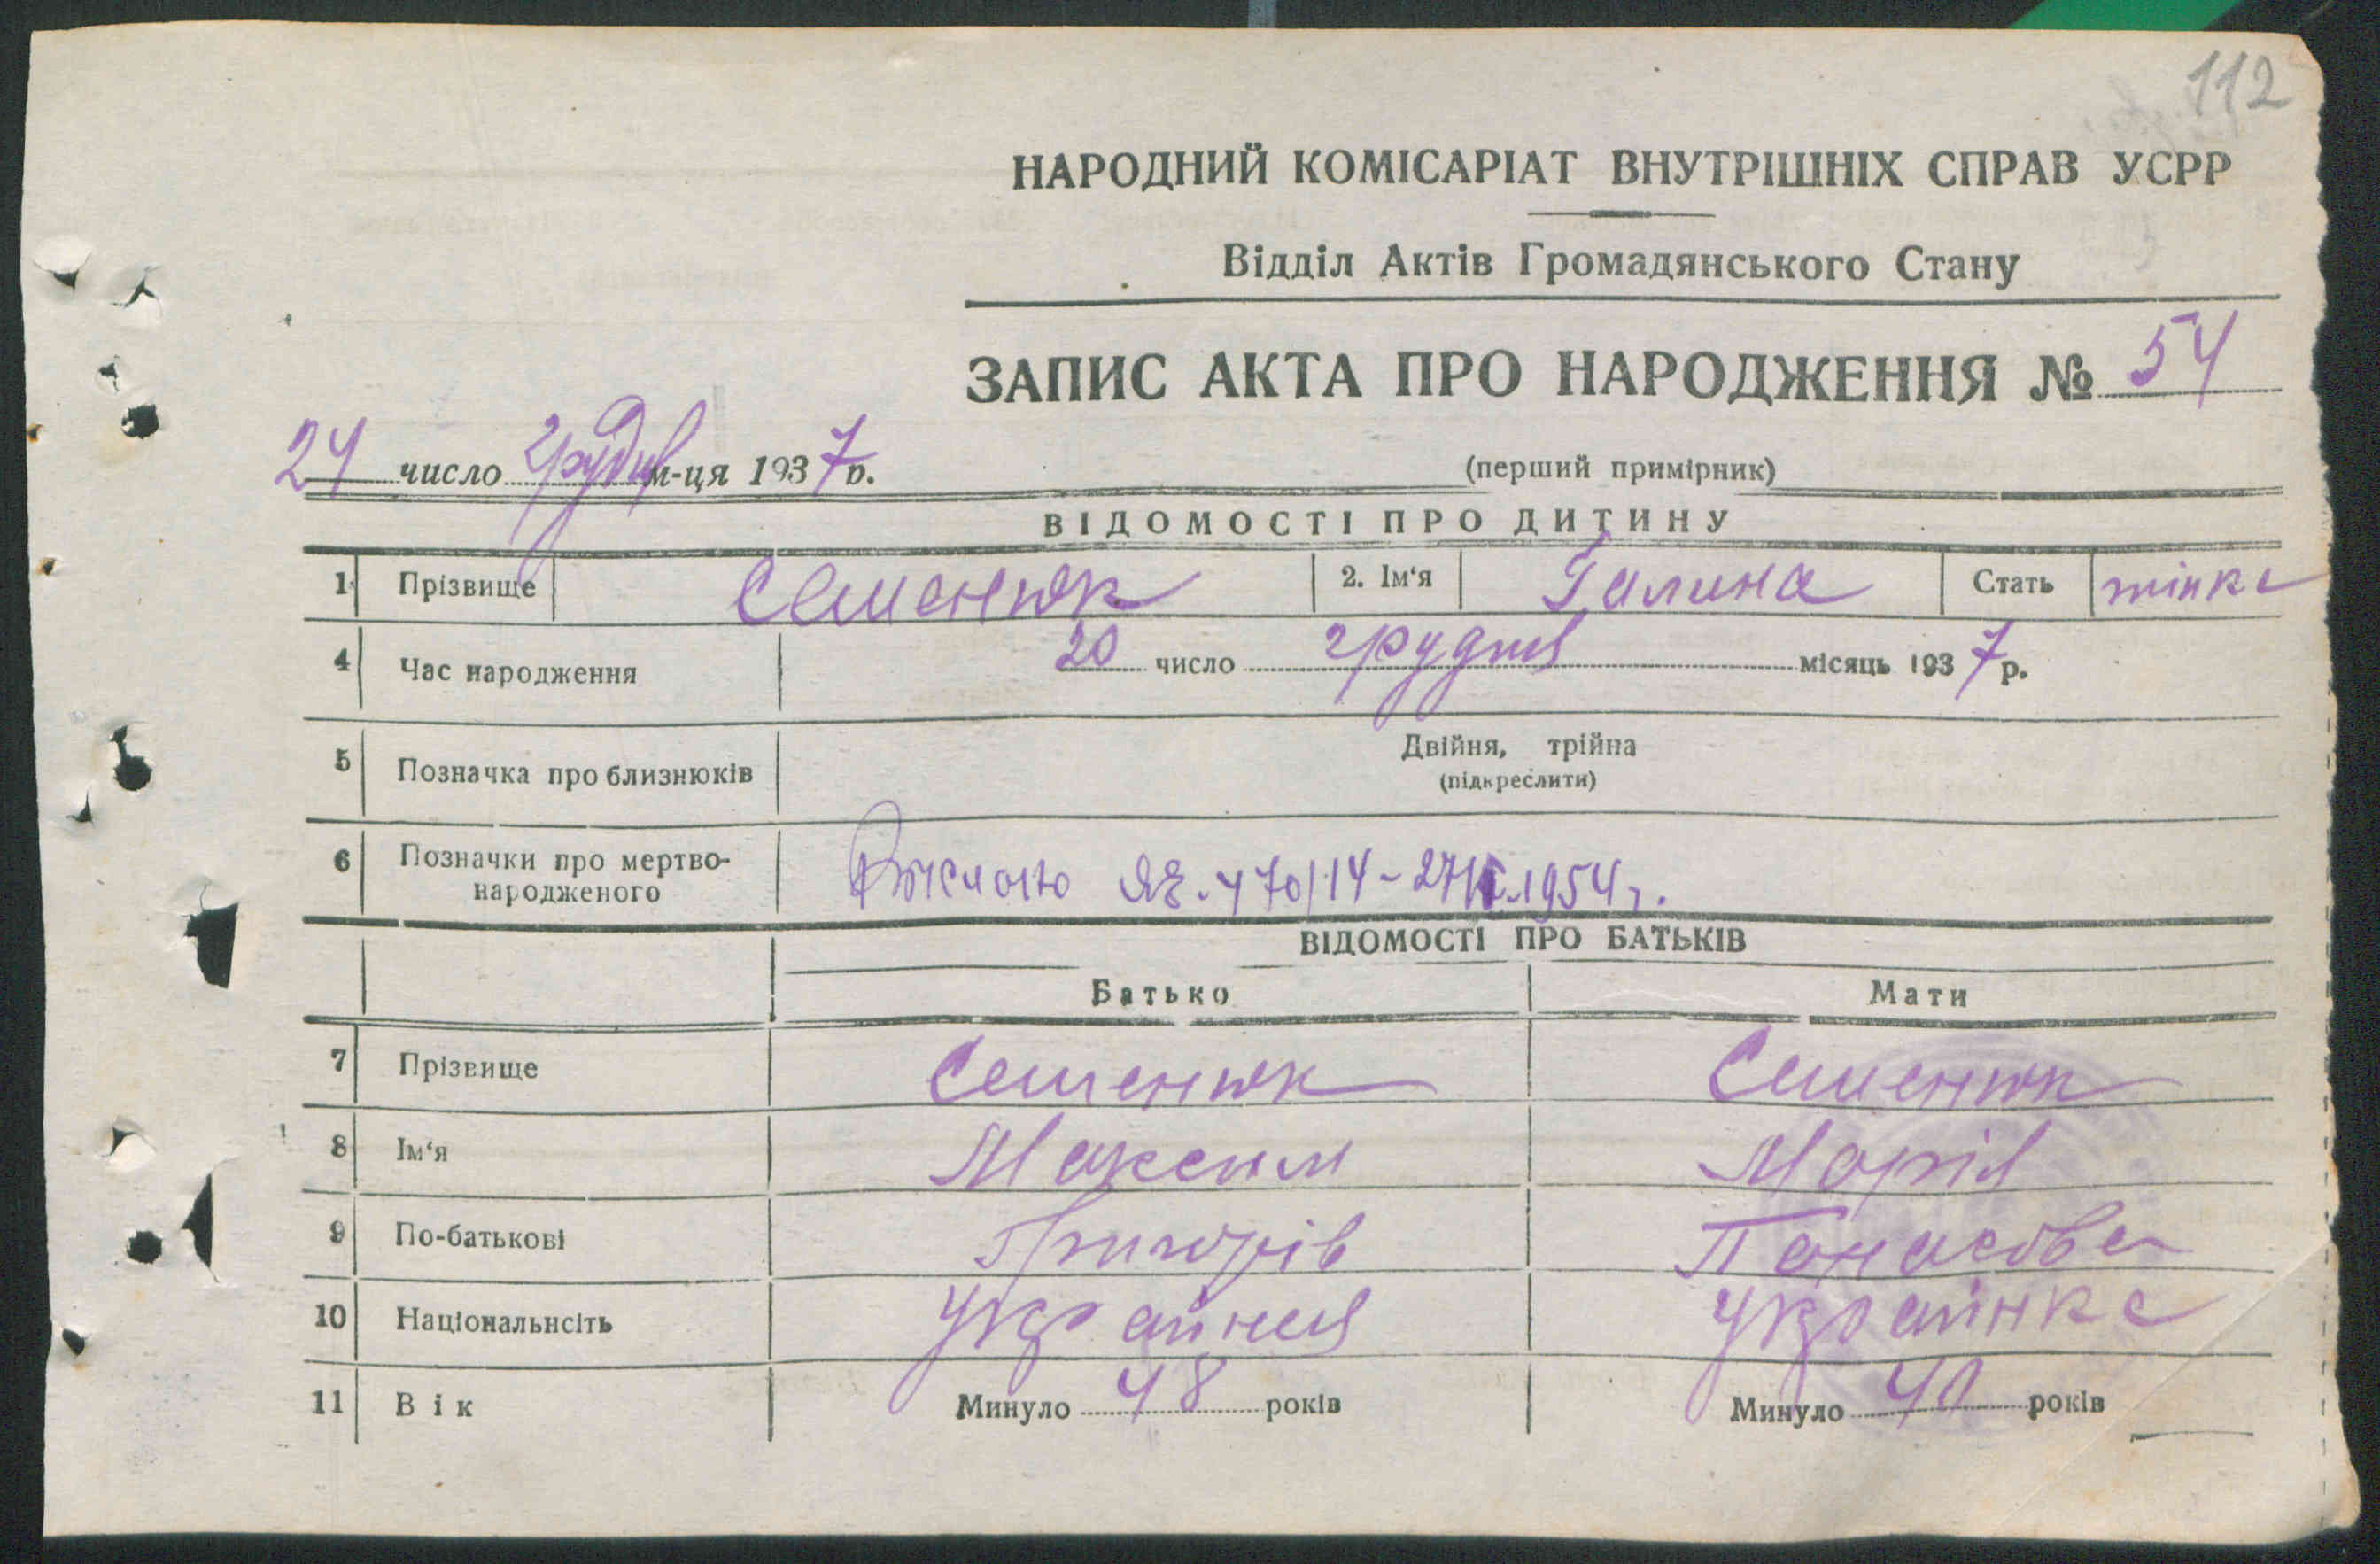 112
НАРОДНИЙ КОМІСАРІАТ ВНУТРІШНІХ СПРАВ УСРР
Відділ Актів Громадянського Стану
ЗАПИС АКТА ПРО НАРОДЖЕННЯ № 54
24 число грудня м-ця 1937 р.
(перший примірник)
ВІДОМОСТІ ПРО ДИТИНУ
1 Прізвище Семенюк 2. Ім'я Галина Стать жінка
4 Час народження 20 число грудня місяць 1937 р.
5 Позначка про близнюків Двійня, трійна
(підкреслити)
6 Позначки про мертво-
народженого
1954 г.
ВІДОМОСТІ ПРО БАТЬКІВ
Батько Мати
7 Прізвище Семенюк Семенюк
8 Ім'я Максим Марія
9 По-батькові Григорів Панасова
10 Національнсіть Українця Українка
11 Вік Минуло 48 років Минуло 40 років